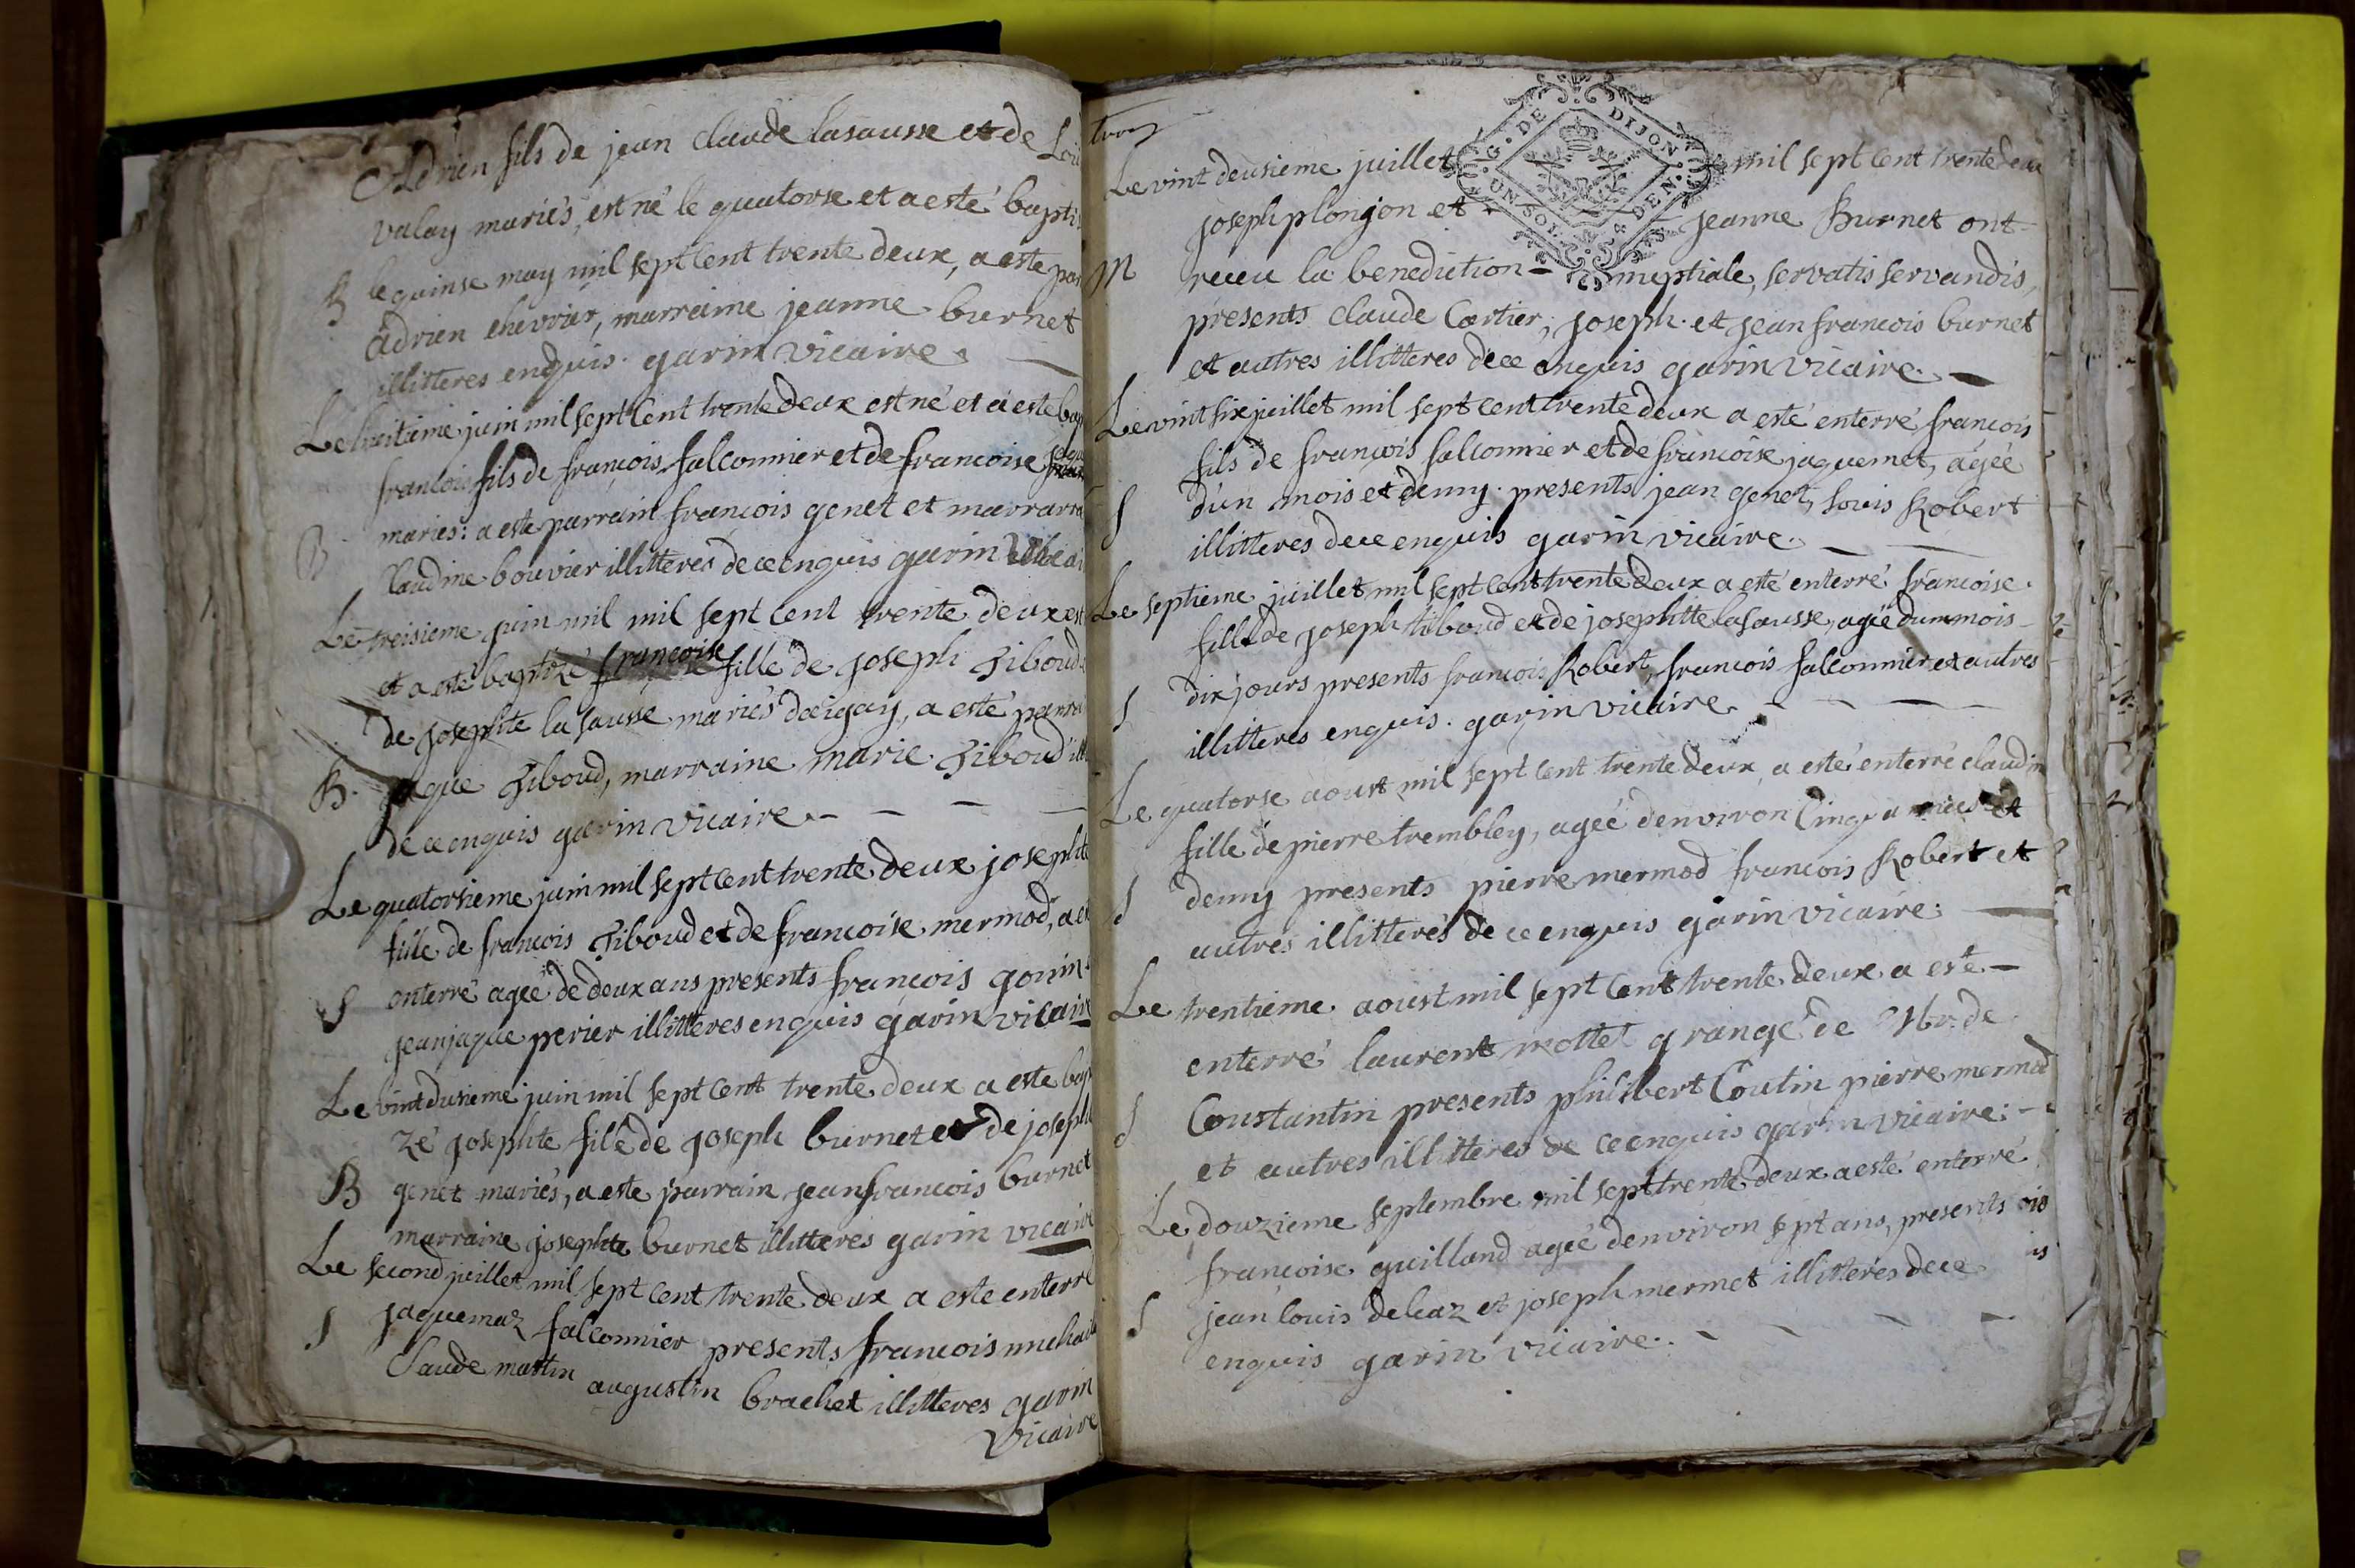 Adrien fils de jean Claude lasausse et de
valay mariés, est né le quatorse et a esté bapti
B
le quinse may mil sept cent trente deux, a este par
Adrien chevrier, marraine jeanne burnet
illitteres enquis. garin vicaire.
Le huitieme juin mil sept cent trente deux est né et a este bap
francois fils de francois falconnier et de francoise
maries: a este parrain francois genet et
B
Claudine bouvier illitteres de ce enquis garin
Le treisieme juin mil mil sept cent trente deux est
et a esté baptizé francoise fille de joseph Tiboud
de josephte la sausse mariés, a esté parra
B.
jaque Tiboud, marraine marie Tiboud ill
de ce enquis garin vicaire
Le quatorsieme juin mil sept cent trente deux josephte
fille de francois Tiboud et de francoise mermod, a es
S
enterré agee de deux ans presents francois gonin
jean jaque perier illitteres enquis garin vicaire
Le vint dusieme juin mil sept cent trente deux a este bap
zé josephte fille de joseph burnet et de joseph
B
genet mariés, a este parrain jean francois burnet
marraine josephte burnet illitteres garin vicaire
Le second juillet mil sept cent trente deux a este enterré
S
jaquemaz falconnier presents francois
Claude martin augustin brachet illitteres garin
vicaire
troy
G. DE DIJON
UN SOL 4 DEN.
Le vint deusieme juillet mil sept cent trente deux
joseph plonjon et jeanne Burnet ont
M
receu la benediction nuptiale, servatis servandis,
presents claude Cartier, joseph et jean francois burnet
et autres illitteres de ce enquis garin vicaire.
Le vint six juillet mil sept cent trente deux a esté enterré francois
fils de francois falconnier et de francoise jaquemet, agée
S
d'un mois et demy. presents jean genet, Louis Robert
illitteres de ce enquis garin vicaire.
Le septieme juillet mil sept cent trente deux a esté enterré francoise
fille de joseph tiboud et de josephtte lasausse, agée dun mois
S
dix jours presents francois Robert, francois falconnier et autres
illitteres enquis. garin vicaire.
Le quatorse aoust mil sept cent trente deux a esté enterré claudin
fille de pierre trembley, agée denviron Cinq années et
S
demy presents pierre mermod francois Robert et
autres illitteres de ce enquis garin vicaire.
Le trentieme aoust mil sept cent trente deux a este
enterré laurent mottet grangé de Mr. de
S
Constantin presents philibert Coutin pierre mermod
et autres illitteres de ce enquis garin vicaire.
Le douzieme septembre mil sept trente deux a esté enterré
francoise guilland agée denviron sept ans, presents
S
jean louis deleaz et joseph mermet illitteres de ce
enquis garin vicaire.